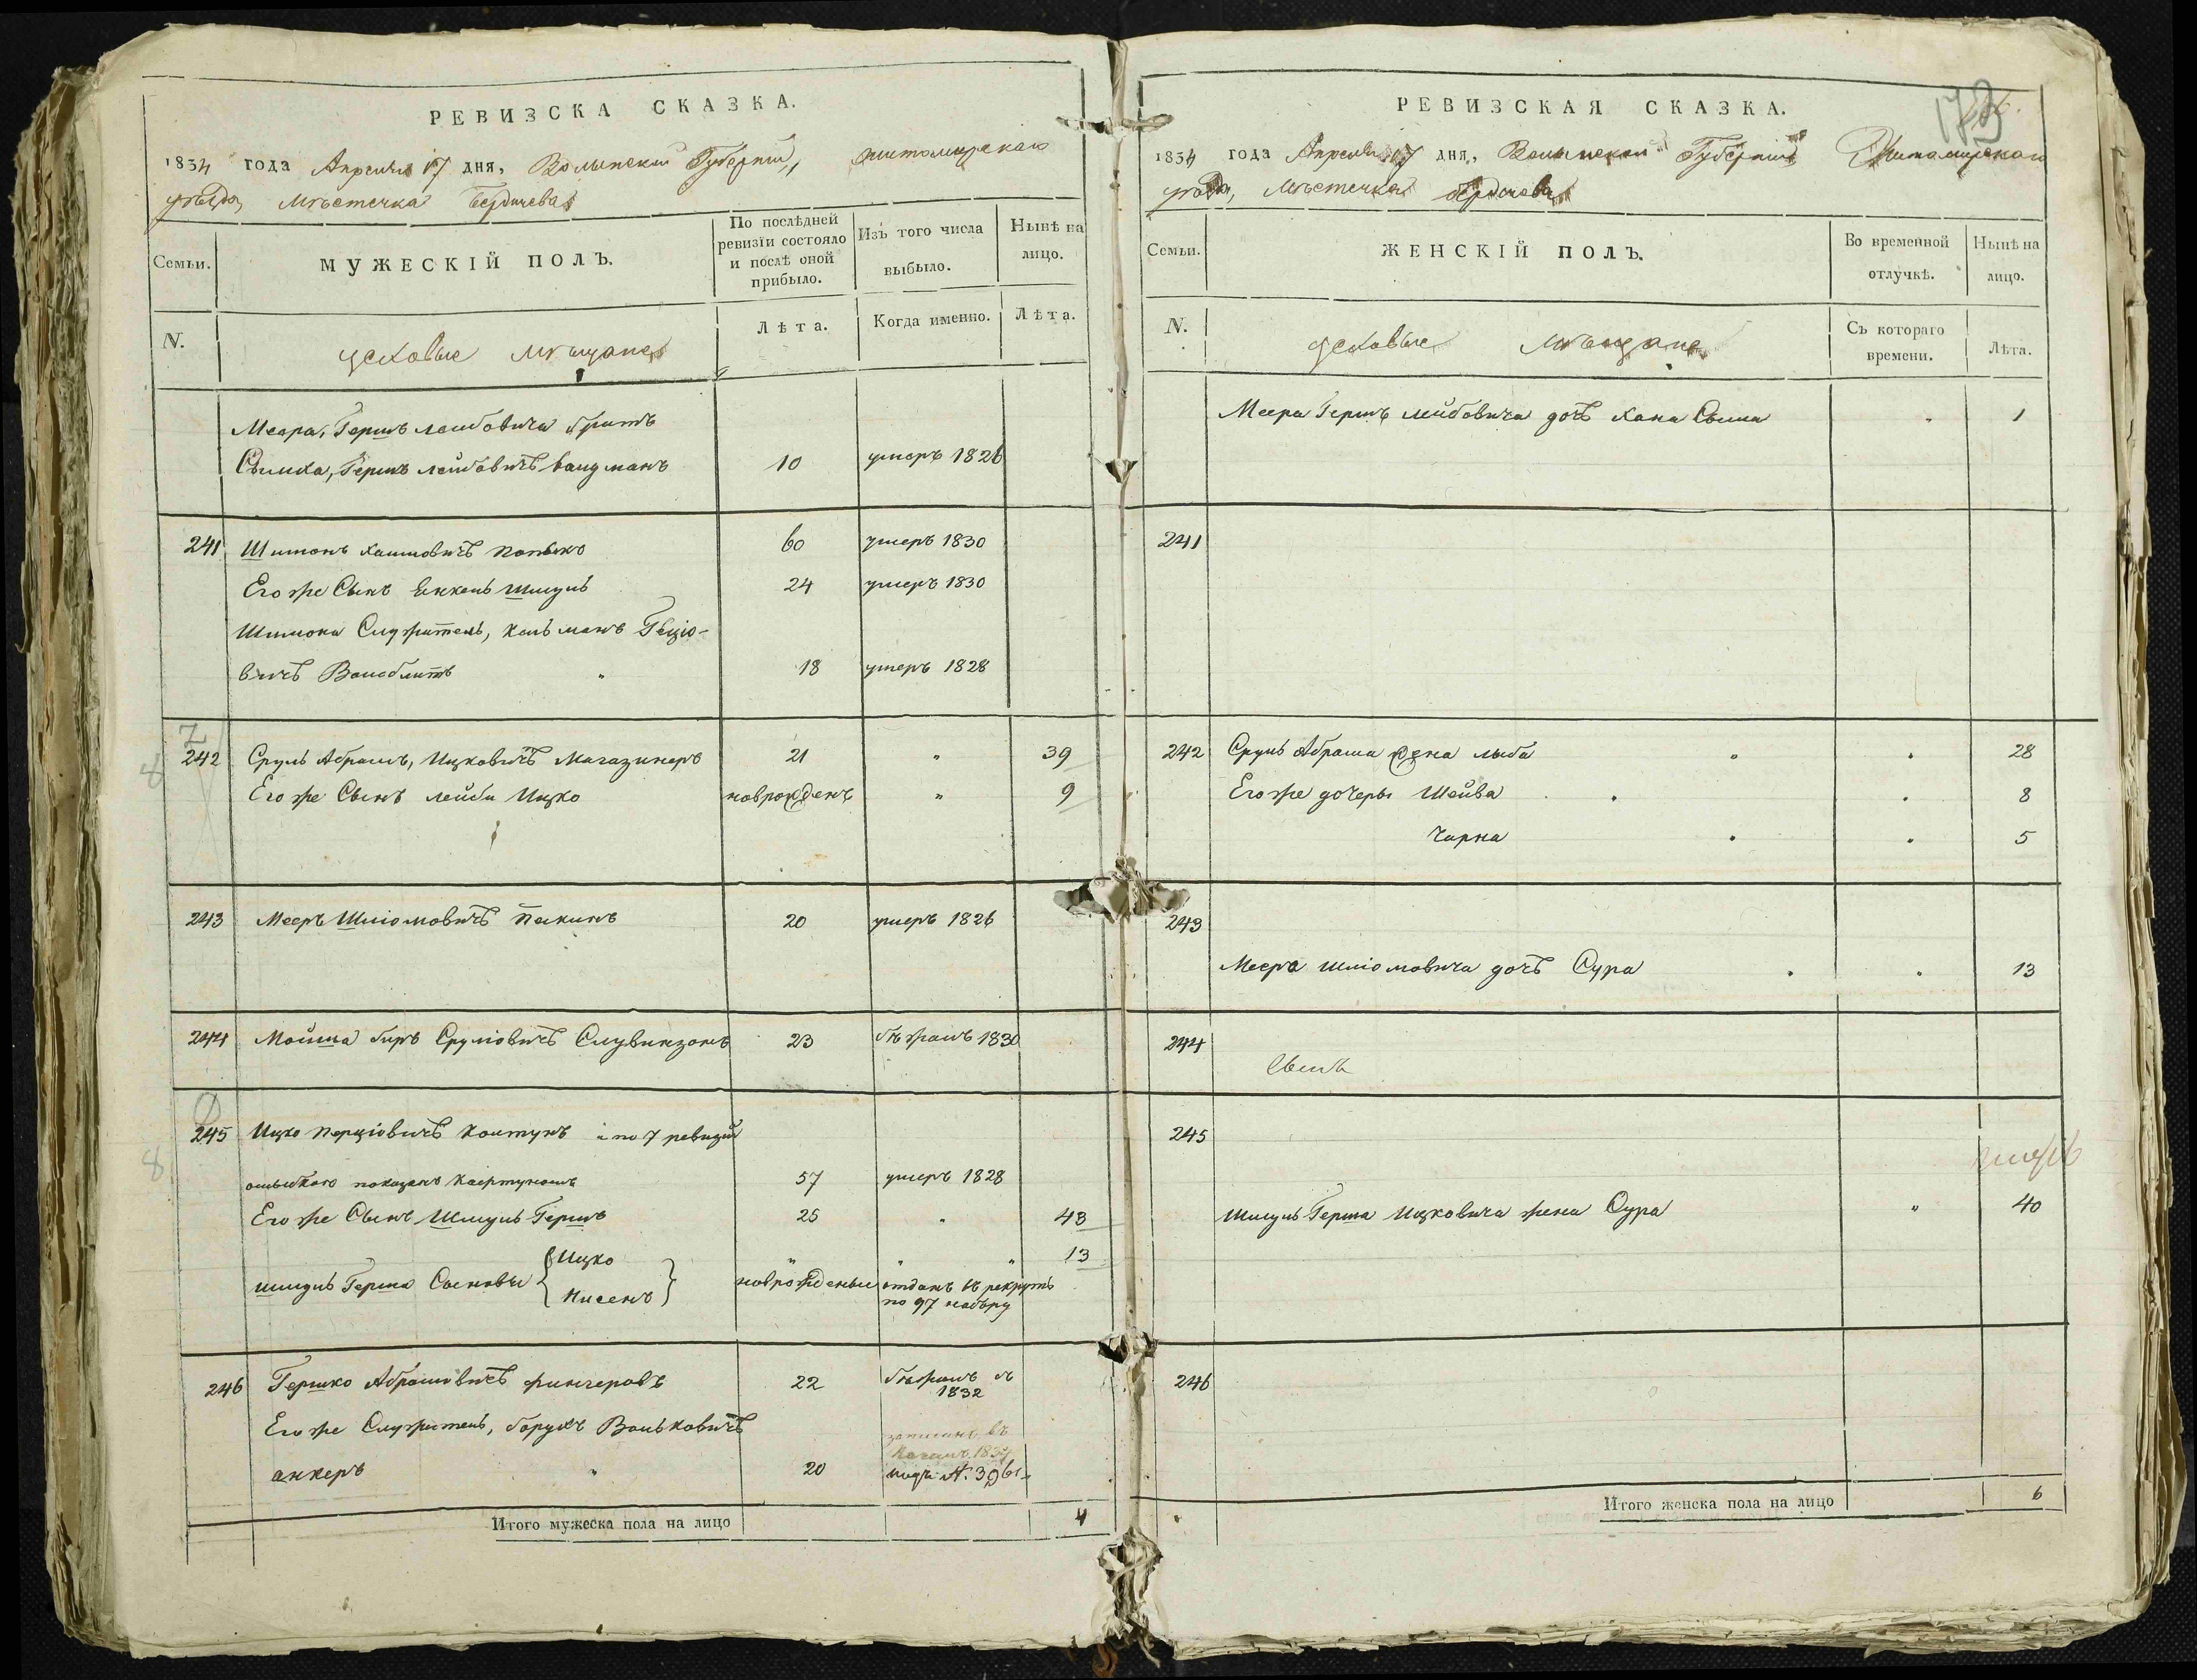 РЕВИЗСКА СКАЗКА.
1834 года Апреля 17 дня, Волынской Губерніи, Житомирскаго
уѣзда, Мѣстечка Бердичева
Семьи.
МУЖЕСКІЙ ПОЛЪ.
По послѣдней
ревизіи состояло
и послѣ оной
прибыло.
Изъ того числа
выбыло.
Нынѣ на
лицо.
N.
цеховые мѣщане
Лѣта.
Когда именно.
Лѣта.
Меера, Гершъ лейбовича братъ
Симха, Гершъ лейбовичъ 10 умеръ 1826
241 Шимонъ хаимовичъ 60 умеръ 1830
Его же Сынъ Янкель Шмуль 24 умеръ 1830
Шимона Служитель, Кельманъ Герціо-
вичъ 18 умеръ 1828
7
242 Сруль Абрамъ, Ицковичъ Магазинеръ 21 " 39
8
Его же Сынъ лейби Ицко новрожденъ " 9
243 Мееръ Шліомовичъ Пакинъ 20 умеръ 1826
244 Мойша беръ Сруліовичъ Слувинзонъ 23 бѣжалъ 1830
245 Ицко Перціовичъ Контунъ а по 7 ревизіи
8
ошибкою показанъ 57 умеръ 1828
Его же Сынъ Шмуль Гершъ 25 " 43
Ицко " " " 13
шмуль Герша Сыновьи
Нисенъ новрожденыи отданъ въ рекруты
по 97 набору
246 Гершко Абрамовичъ финчеровъ 22 бѣжалъ въ
1832
Его же Служитель, борухъ Вольковичъ
записанъ въ
1834
анкеръ " 20 подъ №. 3961
Итого мужеска пола на лицо 4
РЕВИЗСКАЯ СКАЗКА.
173
1834 года Апреля 17 дня, Волынской Губерніи Житомирскаго
уѣзда, Мѣстечка бердичева
Семьи.
ЖЕНСКІЙ ПОЛЪ.
Во временной
отлучкѣ.
Нынѣ на
лицо.
N.
цеховые мѣщане
Съ котораго
времени.
Лѣта.
Меера Гершъ лейбовича дочь хана Сима " 1
241
242 Сруль Абрама жена лыба " " 28
Его же дочеры Шейва " " 8
Чарна " " 5
243
Меера шліомовича дочь Сура " " 13
244
245
Шмуль Герша Ицковича жена Сура " 40
246
Итого женска пола на лицо 6